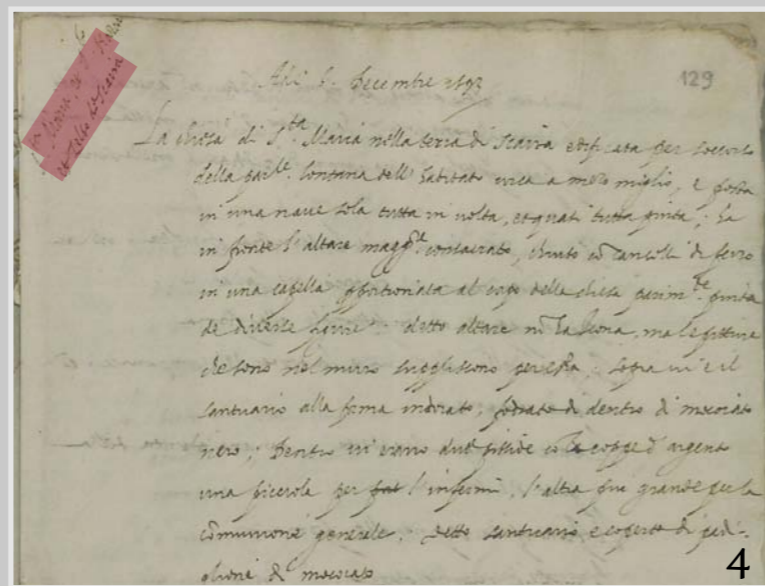 Adi 5. Decembre 1593
129
La chiesa di S.ta Maria nella terra di Scaria edificata per soccorso
della par.le lontana dell'habitato circa a mezo miglio, è posta
in una nave sola tutta in volta, et quasi tutta pinta; ha
in fronte l'altare magg.re consacrato, chiuso cō cancelli di ferro
in una capella pportionata al corpo della chiesa parim.te pinta
de diverse figure: detto altare nō ha icona, ma le pitture
che sono nel muro suppliscono per essa; sopra vi è il
santuario alla forma indorato, fodrato di dentro di mocaiato
nero; Dentro vi erano due pisside cō la coppa d'argento
una piccola per l'infermi, l'altra piu grande per la
cōmunione generale; detto santuario è coperto di padi-
glione di mocaiato
4